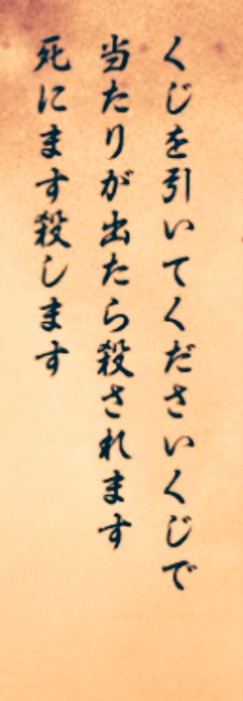 くじを引いてくださいくじで
当たりが出たら殺されます
死にます殺します